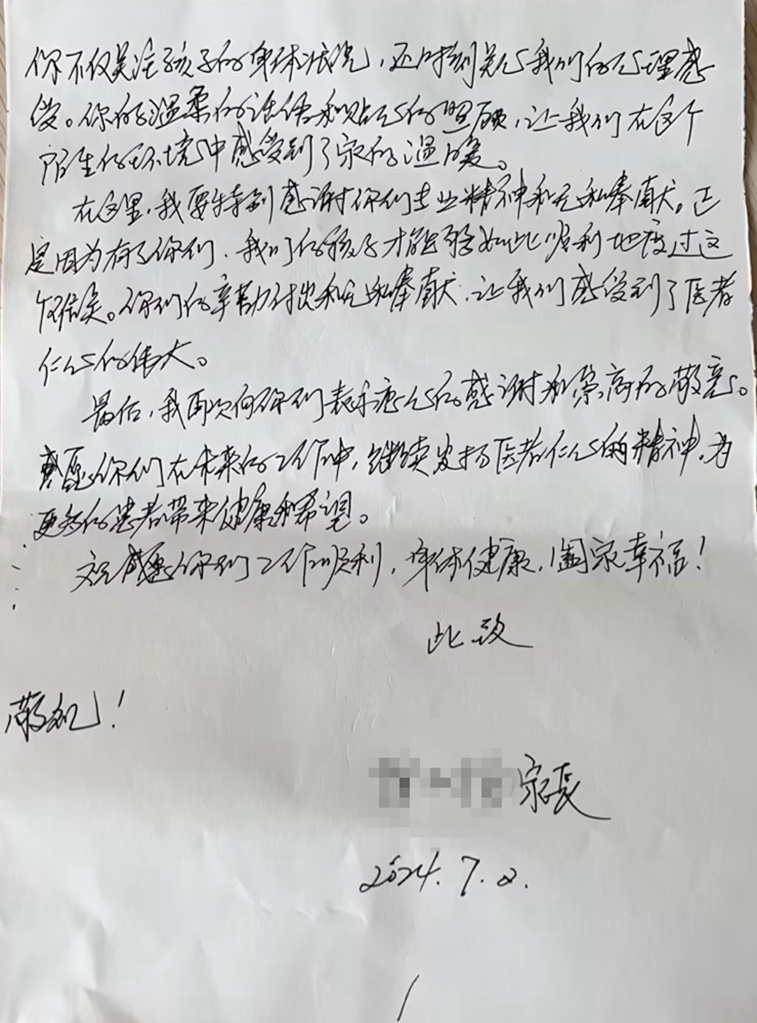 你不仅关注孩子的身体状况，还时刻关心我们的心理感
受。你的温柔的话语和贴心的照顾，让我们在这个
陌生的环境中感受到了家的温暖。
在这里，我要特别感谢你们专业精神和无私奉献。正
是因为有了你们，我们的孩子才能够如此顺利地度过这
个难关。你们的辛勤付出和无私奉献，让我们感受到了医者
仁心的伟大。
最后，我再次向你们表示衷心的感谢和崇高的敬意。
愿你们在未来的工作中，继续发扬医者仁心的精神，为
更多的患者带来健康和希望。
祝愿你们工作顺利，身体健康，阖家幸福！
此致
敬礼！
家长
2024.7.2.